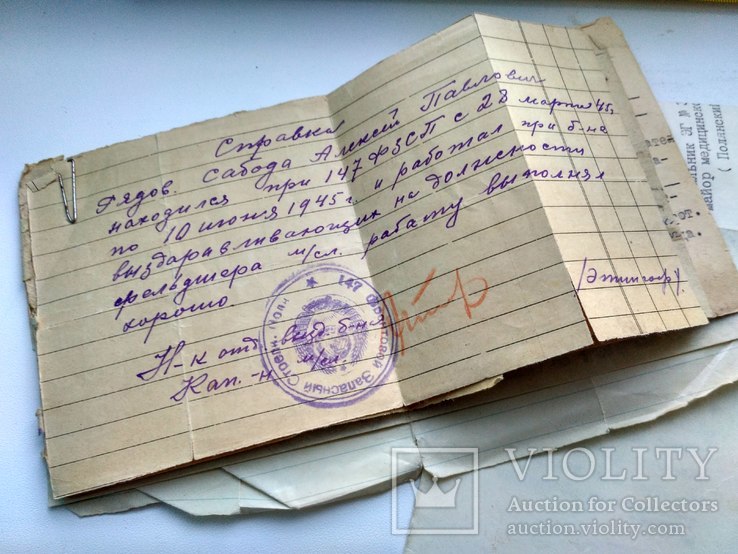 Справка
Рядов. Сабода Алексей Павлович
находился при 147 ФЗСП с 28 марта 45г.
по 10 июня 1945 г. и работал при б-не
выздаравливающих на должности
фельдшера м/сл. работу выполнял
хорошо
Н-к отд. вызд. б-на
Кап-н м/сл.
/Этингоф/.
147 Фронтовой Запасный Стрелк. Полк
майор медицинско
( Полянский
VIOLITY
Auction for Collectors
auction.violity.com